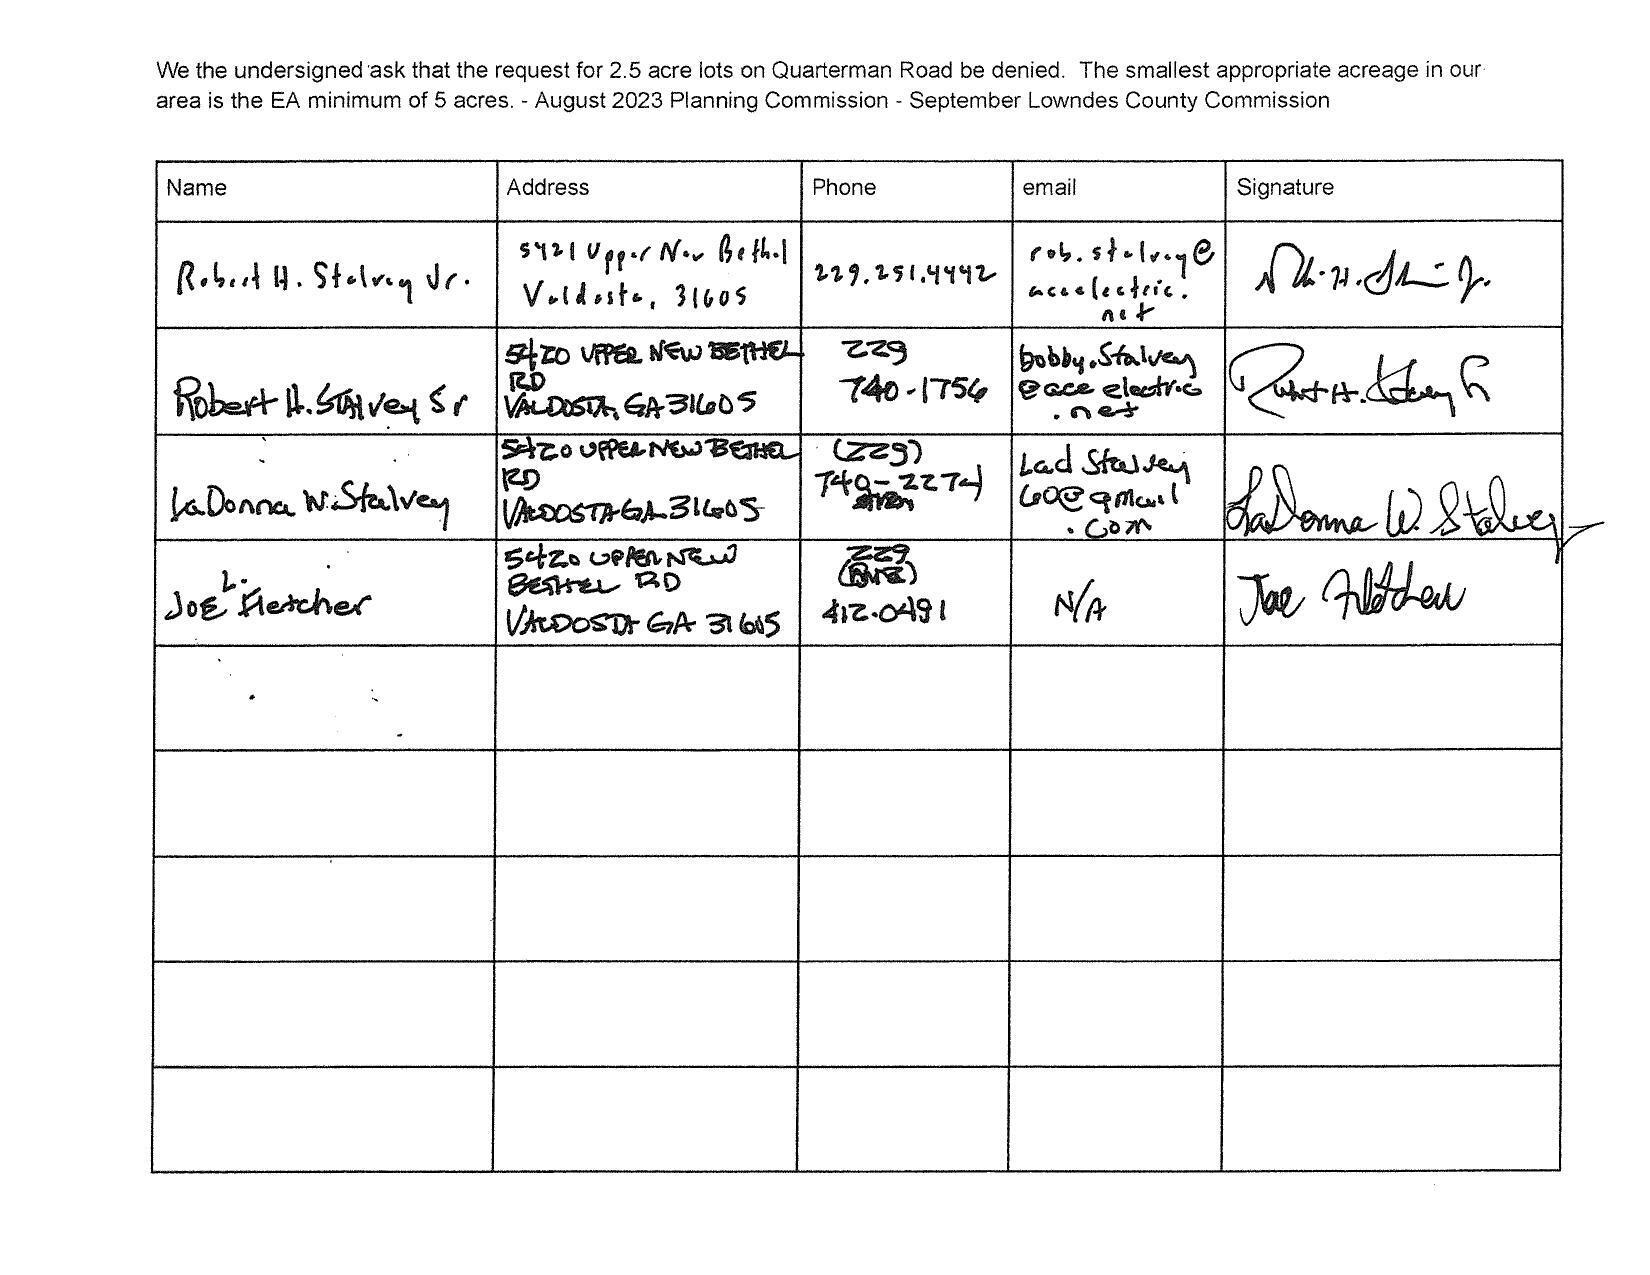 We the undersigned ask that the request for 2.5 acre lots on Quarterman Road be denied. The smallest appropriate acreage in our
area is the EA minimum of 5 acres. - August 2023 Planning Commission - September Lowndes County Commission
Name Address Phone email Signature
Robert H. Stalvey Jr.
5421 Upper New Bethel
Valdosta, 31605
229.251.4442
rob.stalvey@
aceelectric.
net
5420 UPPER NEW BETHEL
RD
VALDOSTA, GA 31605
Robert H. Stalvey Sr
229
740-1756
bobby.Stalvey
@ace electric
.net
Robert H. Stalvey Sr
LaDonna W. Stalvey
5420 UPPER NEW BETHEL
RD
VALDOSTA GA 31605
(229)
740-2274
Lad Stalvey
60@gmail
.com
LaDonna W. Stalvey
Joe L. Fletcher
5420 UPPER NEW
BETHEL RD
VALDOSTA GA 31605
229
412-0491
N/A
Joe Fletcher